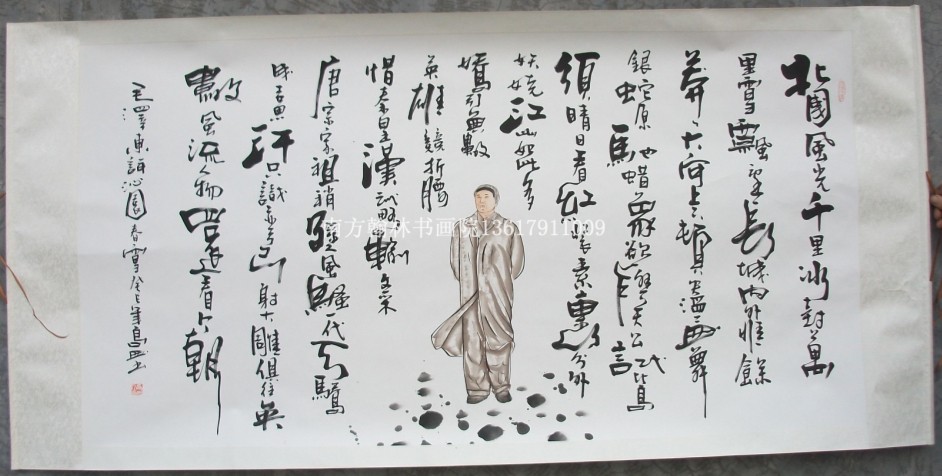 北國風光千里冰封萬
里雪飄望長城内外惟餘
莽々大河上下頓失滔滔山舞
銀蛇原馳蜡象欲與天公試比高
須晴日看紅裝素裹分外
妖娆江山如此多
嬌引無數
英雄競折腰
惜秦皇漢武略輸文采
唐宗宋祖稍遜風騷一代天驕
成吉思汗只識彎弓射大雕俱往矣
數風流人物還看今朝
毛澤東詞沁園春雪癸巳年
南方翰林书画院13617911009